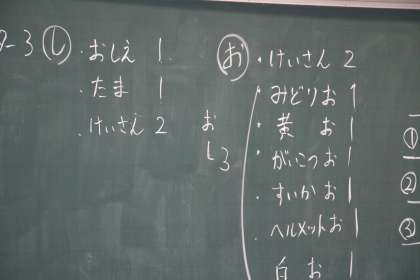 9-3 し
・おしえ 1
・たま 1
・けいさん 2
お
し3
お ・けいさん 2
・みどりお 1
・黄 お 1
・がいこつお 1
・すいか お 1
・ヘルメットお 1
白 お 1
①
②
③